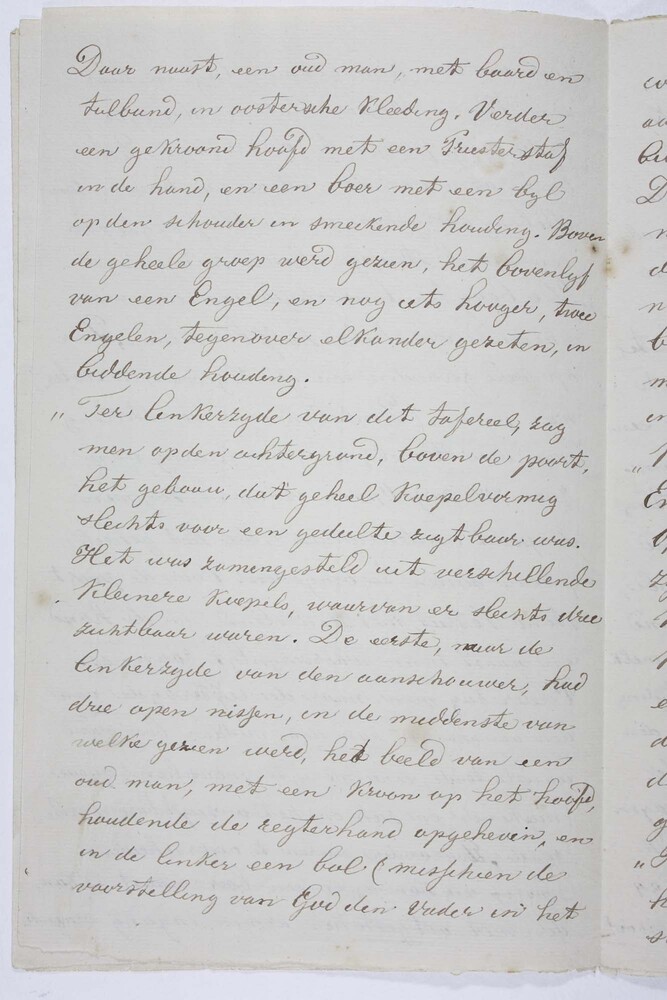 Daar naast, een oud man, met baard en
tulband, in oostersche kleeding. Verder
een gekroond hoofd met een Priesterstaf
in de hand, en een boer met een byl
op den schouder in smeekende houding. Boven
de geheele groep werd gezien, het bovenlyf
van een Engel, en nog iets hooger, twee
Engelen, tegenover elkander gezeten, in
biddende houding.
„ Ter linkerzyde van dit tafereel, zag
men op den achtergrond, boven de poort,
het gebouw, dat geheel koepelvormig
slechts voor een gedeelte zigtbaar was.
Het was zamengesteld uit verschillende
kleinere koepels, waarvan er slechts drie
zichtbaar waren. De eerste, naar de
linkerzyde van den aanschouwer, had
drie open nissen, in de middenste van
welke gezien werd, het beeld van een
oud man, met een kroon op het hoofd,
houdende de regterhand opgeheven, en
in de linker een bal (misschien de
voorstelling van God den Vader in het